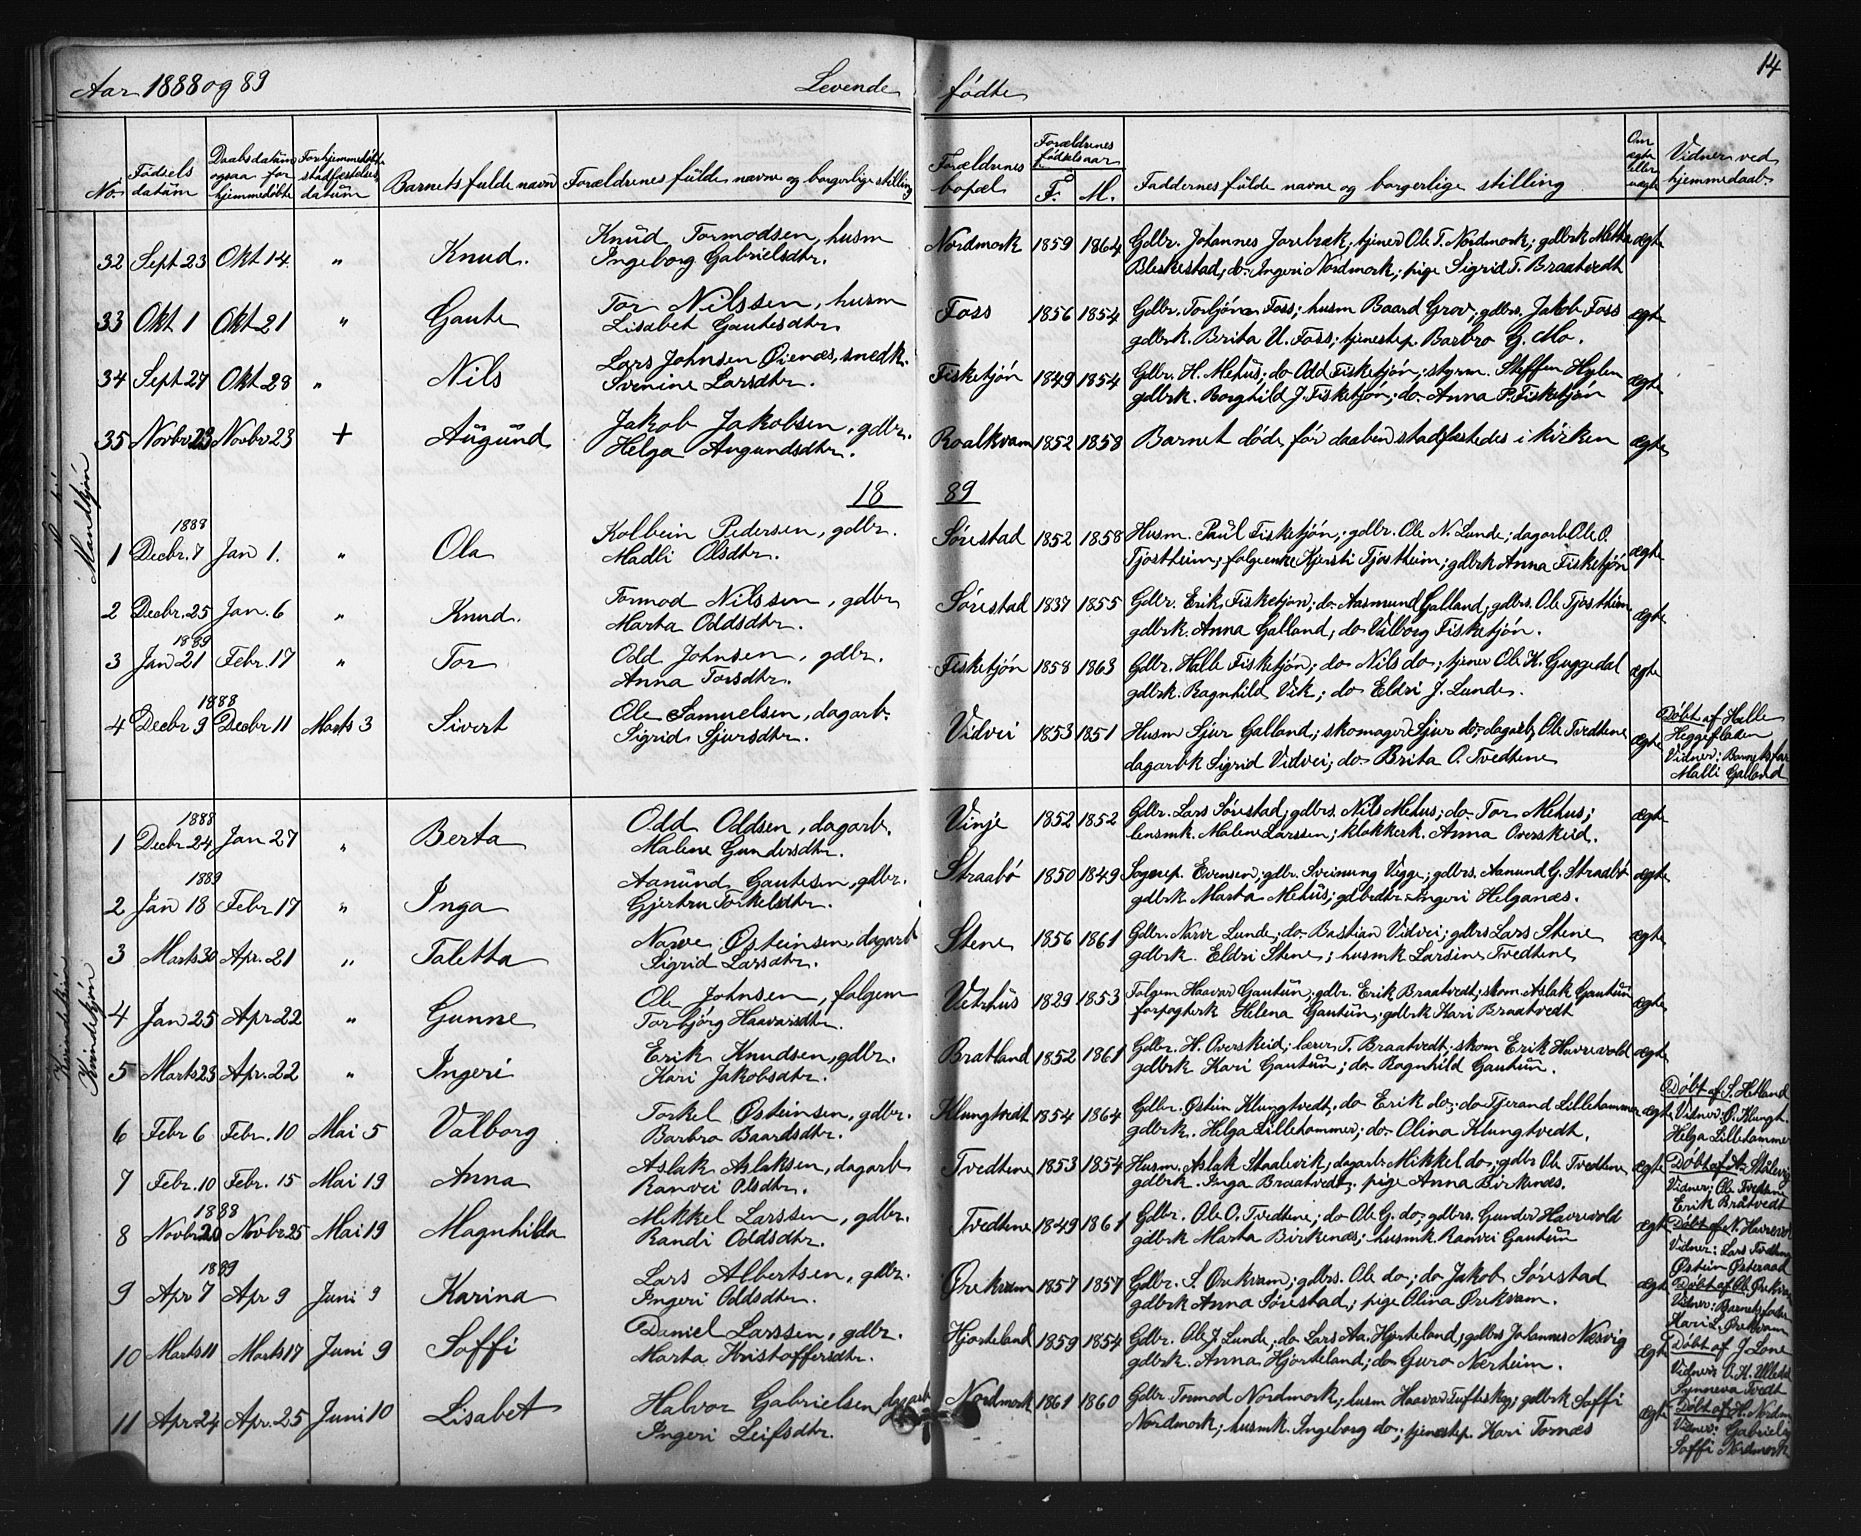 14
Aar 1888 og 89 Levende fødte
No. Fødsels datum Daabsdatum ogsaa for hjemmedøbte For hjemmedøbte stadfæstelses datum Barnets fulde navn Forældrenes fulde navne og borgerlige stilling Forældrenes bopæl Forældrenes fødselsaar F. M. Faddernes fulde navne og borgerlige stilling Om ægte eller uægte Vidner ved hjemmedaab
Mandkjøn
32 Sept 23 Okt 14 " Knud. Knud Tormodsen, husm Nordmork 1859 1864 Gdbr. Johannes Jorebræk; tjener Ole T. Nordmork; gdbrk Metha ægte
Ingeborg Gabrielsdtr. Bleskestad, do. Ingeri Nordmork; pige Sigrid T. Braatvedt
33 Okt 1 Okt 21 " Gaute Tor Nilssen, husm Foss 1856 1854 Gdbr. Torbjörn Foss; husm Baard Grov; gdbrs. Jakob Foss ægte
Lisabet Gautesdtr gdbrk. Brita U. Foss; tjenestep. Barbro G. Mo.
34 Sept 27 Okt 28 " Nils Lars Johnsen Øienæs, snedk. Fisketjön 1849 1854 Gdbr. H. Mehus; do Odd Fisketjön; styrm. Steffen Hylen ægte
Svenine Larsdtr. gdbrk. Borghild J. Fisketjön; do. Anna P. Fisketjön
35 Novbr 23 Novbr 23 + Augund Jakob Jakobsen, gdbr. Roalkvam 1852 1858 Barnet døde før daaben stadfæstedes i kirken ægte
Helga Augundsdtr.
18 89
1888
1 Decbr. 7 Jan 1. " Ola Kolbein Pedersen, gdbr. Sørestad 1852 1858 Husm. Paul Fisketjön; gdbr. Ole N. Lunde; dagarb Ole O. ægte
Madli Olsdtr. Tjostheim; folgeenke Kjersti Tjostheim; gdbrk Anna Fisketjön
2 Decbr. 25 Jan. 6 " Knud. Tormod Nilssen, gdbr Sørestad 1837 1855 Gdbr. Erik Fisketjon; do. Aasmund Galland; gdbrs. Ole Tjostheim ægte
Marta Oddsdtr. gdbrk. Anna Galland; do Valborg Fisketjön.
1889
3 Jan 21 Febr. 17 " Tor Odd Johnsen, gdbr. Fisketjön 1858 1863 Gdbr. Halle Fisketjön; do Nils do; tjener Ole K. Guggedal ægte
Anna Torsdtr. gdbrk. Ragnhild Vik; do Eldri J. Lunde.
1888
4 Decbr 9 Decbr 11 Marts 3 Sivert Ole Samuelsen, dagarb. Vidvei 1853 1851 Husm Sjur Galland; skomager Sjur do; dagarb Ole Tvedtene ægte Døbt af Halle Heggefladen
Sigrid Sjursdtr. dagarbk Sigrid Vidvei; do Brita O. Tvedtene Vidner: Barnets far Malli Galland
Kvindekjøn
Kvindekjøn
1888
1 Decbr 24 Jan 27 " Berta Odd Oddsen, dagarb. Vinje 1852 1852 Gdbr. Lars Sørestad; gdbrs. Nils Mehus; do Tor Mehus; ægte
Malene Gundersdtr. lensmk. Malene Larssen; klokkerk. Anna Overskeid.
1889
2 Jan 18 Febr 17 " Inga Aanund Gautesen, gdbr. Straabø 1850 1849 Sogsep. Evensen; gdbr. Sveinung Vegge; gdbrs. Aanund G. Straabø ægte
Gjertru Torkelsdtr. gdbrk Marta Mehus; gdbrdtr. Ingeri Helganæs.
3 Marts 30 Apr. 21 " Taletta Narve Østeinsen, dagarb Stene 1856 1861 Gdbr. Narve Lunde; do Bastian Vidvei; gdbrs Lars Stene ægte
Sigrid Larsdtr. gdbrk. Eldri Stene; husmk Larsine Tvedtene
4 Jan 25 Apr 22 " Gunne Ole Johnsen, folgem Vetrhus 1829 1853 Folgem Haavar Gautun; gdbr. Erik Braatvedt; skom. Aslak Gautun ægte
Torbjörg Haavarsdtr. forpagterk Helena Gautun; gdbrk Kari Braatvedt
5 Marts 23 Apr. 22 " Ingeri Erik Knudsen, gdbr. Bratland 1852 1861 Gdbr. H. Overskeid; lærer T. Braatvedt; skom Erik Havrevold ægte
Kari Jakobsdtr. gdbrk Kari Gautun; do Ragnhild Gautun.
6 Febr 6 Febr. 10 Mai 5 Valborg Torkel Østeinsen, gdbr. Klungtvedt 1854 1864 Gdbr. Østein Klungtvedt, do Erik do; do Tjerand Lillehammer ægte Døbt af S. Helland
Barbro Baardsdtr. gdbrk. Helga Lillehammer; do Olina Klungtvedt. Vidner: Ø. Klungt. Helga Lillehammer
7 Febr. 10 Febr. 15 Mai 19 Anna Aslak Aslaksen, dagarb Tvedtene 1853 1854 Husm. Aslak Staalevik; dagarb. Mikkel do; gdbr Ole Tvedtene ægte Døbt af A. Stålevig
Ranvei Olsdtr. gdbrk. Inga Braatvedt; pige Anna Birkenæs. Vidner: Ole Tvedtene Erik Bratvedt
1888
8 Novbr 20 Novbr 25 Mai 19 Magnhilda Mikkel Larssen, gdbr. Tvedtene 1849 1861 Gdbr. Ole O. Tvedtene; do Ole G. do; gdbrs. Gunder Havrevold ægte Døbt af N. Havrevol
Randi Oddsdtr. gdbrk Marta Birkenæs; husmk. Ranvei Gautun Vidner: Lars Tvedtene Østein Østeraad
1889
9 Apr 7 Apr 9 Juni 9 Karina Lars Albertsen, gdbr. Ørekvam 1857 1857 Gdbr. S. Ørekvam; gdbrs. Ole do; do Jakob Sørestad ægte Døbt af Ol. Ørekva
Ingeri Oddsdtr. gdbrk Anna Sørestad; pige Olina Ørekvam. Vidner: Barnets fader Kari L. Ørekvam
10 Marts 11 Marts 17 Juni 9 Soffi Daniel Larssen, gdbr. Hjorteland 1859 1854 Gdbr. Ole J. Lunde; do Lars Aa. Hjorteland; gdbrs Johannes Næsvig ægte Døbt af J. Lone
Marta Kristoffersdtr. gdbrk. Anna Hjorteland; do Guro Nærheim. Vidner: O. H. Ullestd Synneva Tvedt
11 Apr. 24 Apr. 25 Juni 10 Lisabet Halvor Gabrielsen, dagarb Nordmork 1861 1860 Gdbr. Tormod Nordmork; husm Haavar Tufteskog; gdbrk Soffi ægte Døbt af H. Nordm
Ingeri Leifsdtr. Nordmork; husmk. Ingeborg do; tjenestep. Kari Tornæs Vidner: Gabriel og Soffi Nordmork